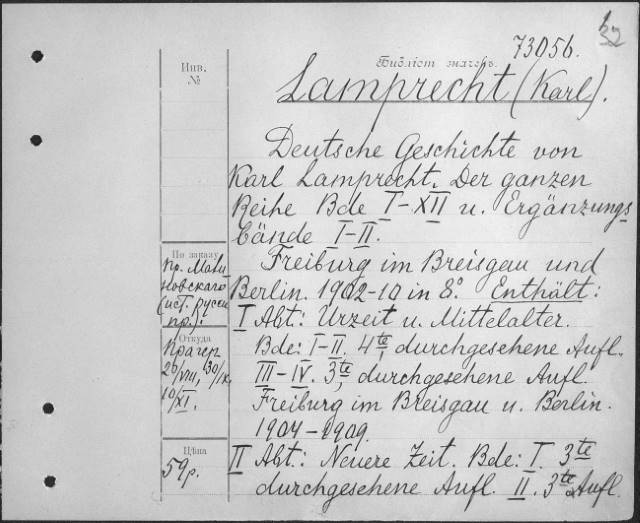 32
73056.
Инв.
№
Библіот. значекъ.
Lamprecht (Karl).
Deutsche Geschichte von
Karl Lamprecht. Der ganzen
Reihe Bde I–XII u. Ergänzungs
bände I–II.
По заказу
пр. Мали
новскаго
(ист. русск
пр.).
Freiburg im Breisgau und
Berlin. 1902–10 in 8°. Enthält:
I Abt: Urzeit u. Mittelalter.
Откуда
Прагер
20/VIII, 30/IX,
10/XI.
Bde: I–II. 4te, durchgesehene Aufl.
III–IV. 3te, durchgesehene Aufl.
Freiburg im Breisgau u. Berlin.
1904–1909.
Цѣна
59р.
II Abt: Neuere Zeit. Bde: I. 3te
durchgesehene Aufl. II. 3te Aufl.